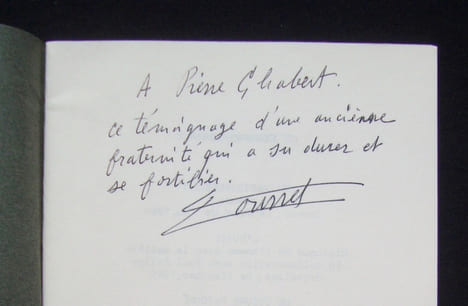 A Pierre Chabert.
ce témoignage d'une ancienne
fraternité qui a su durer et
se fortifier.